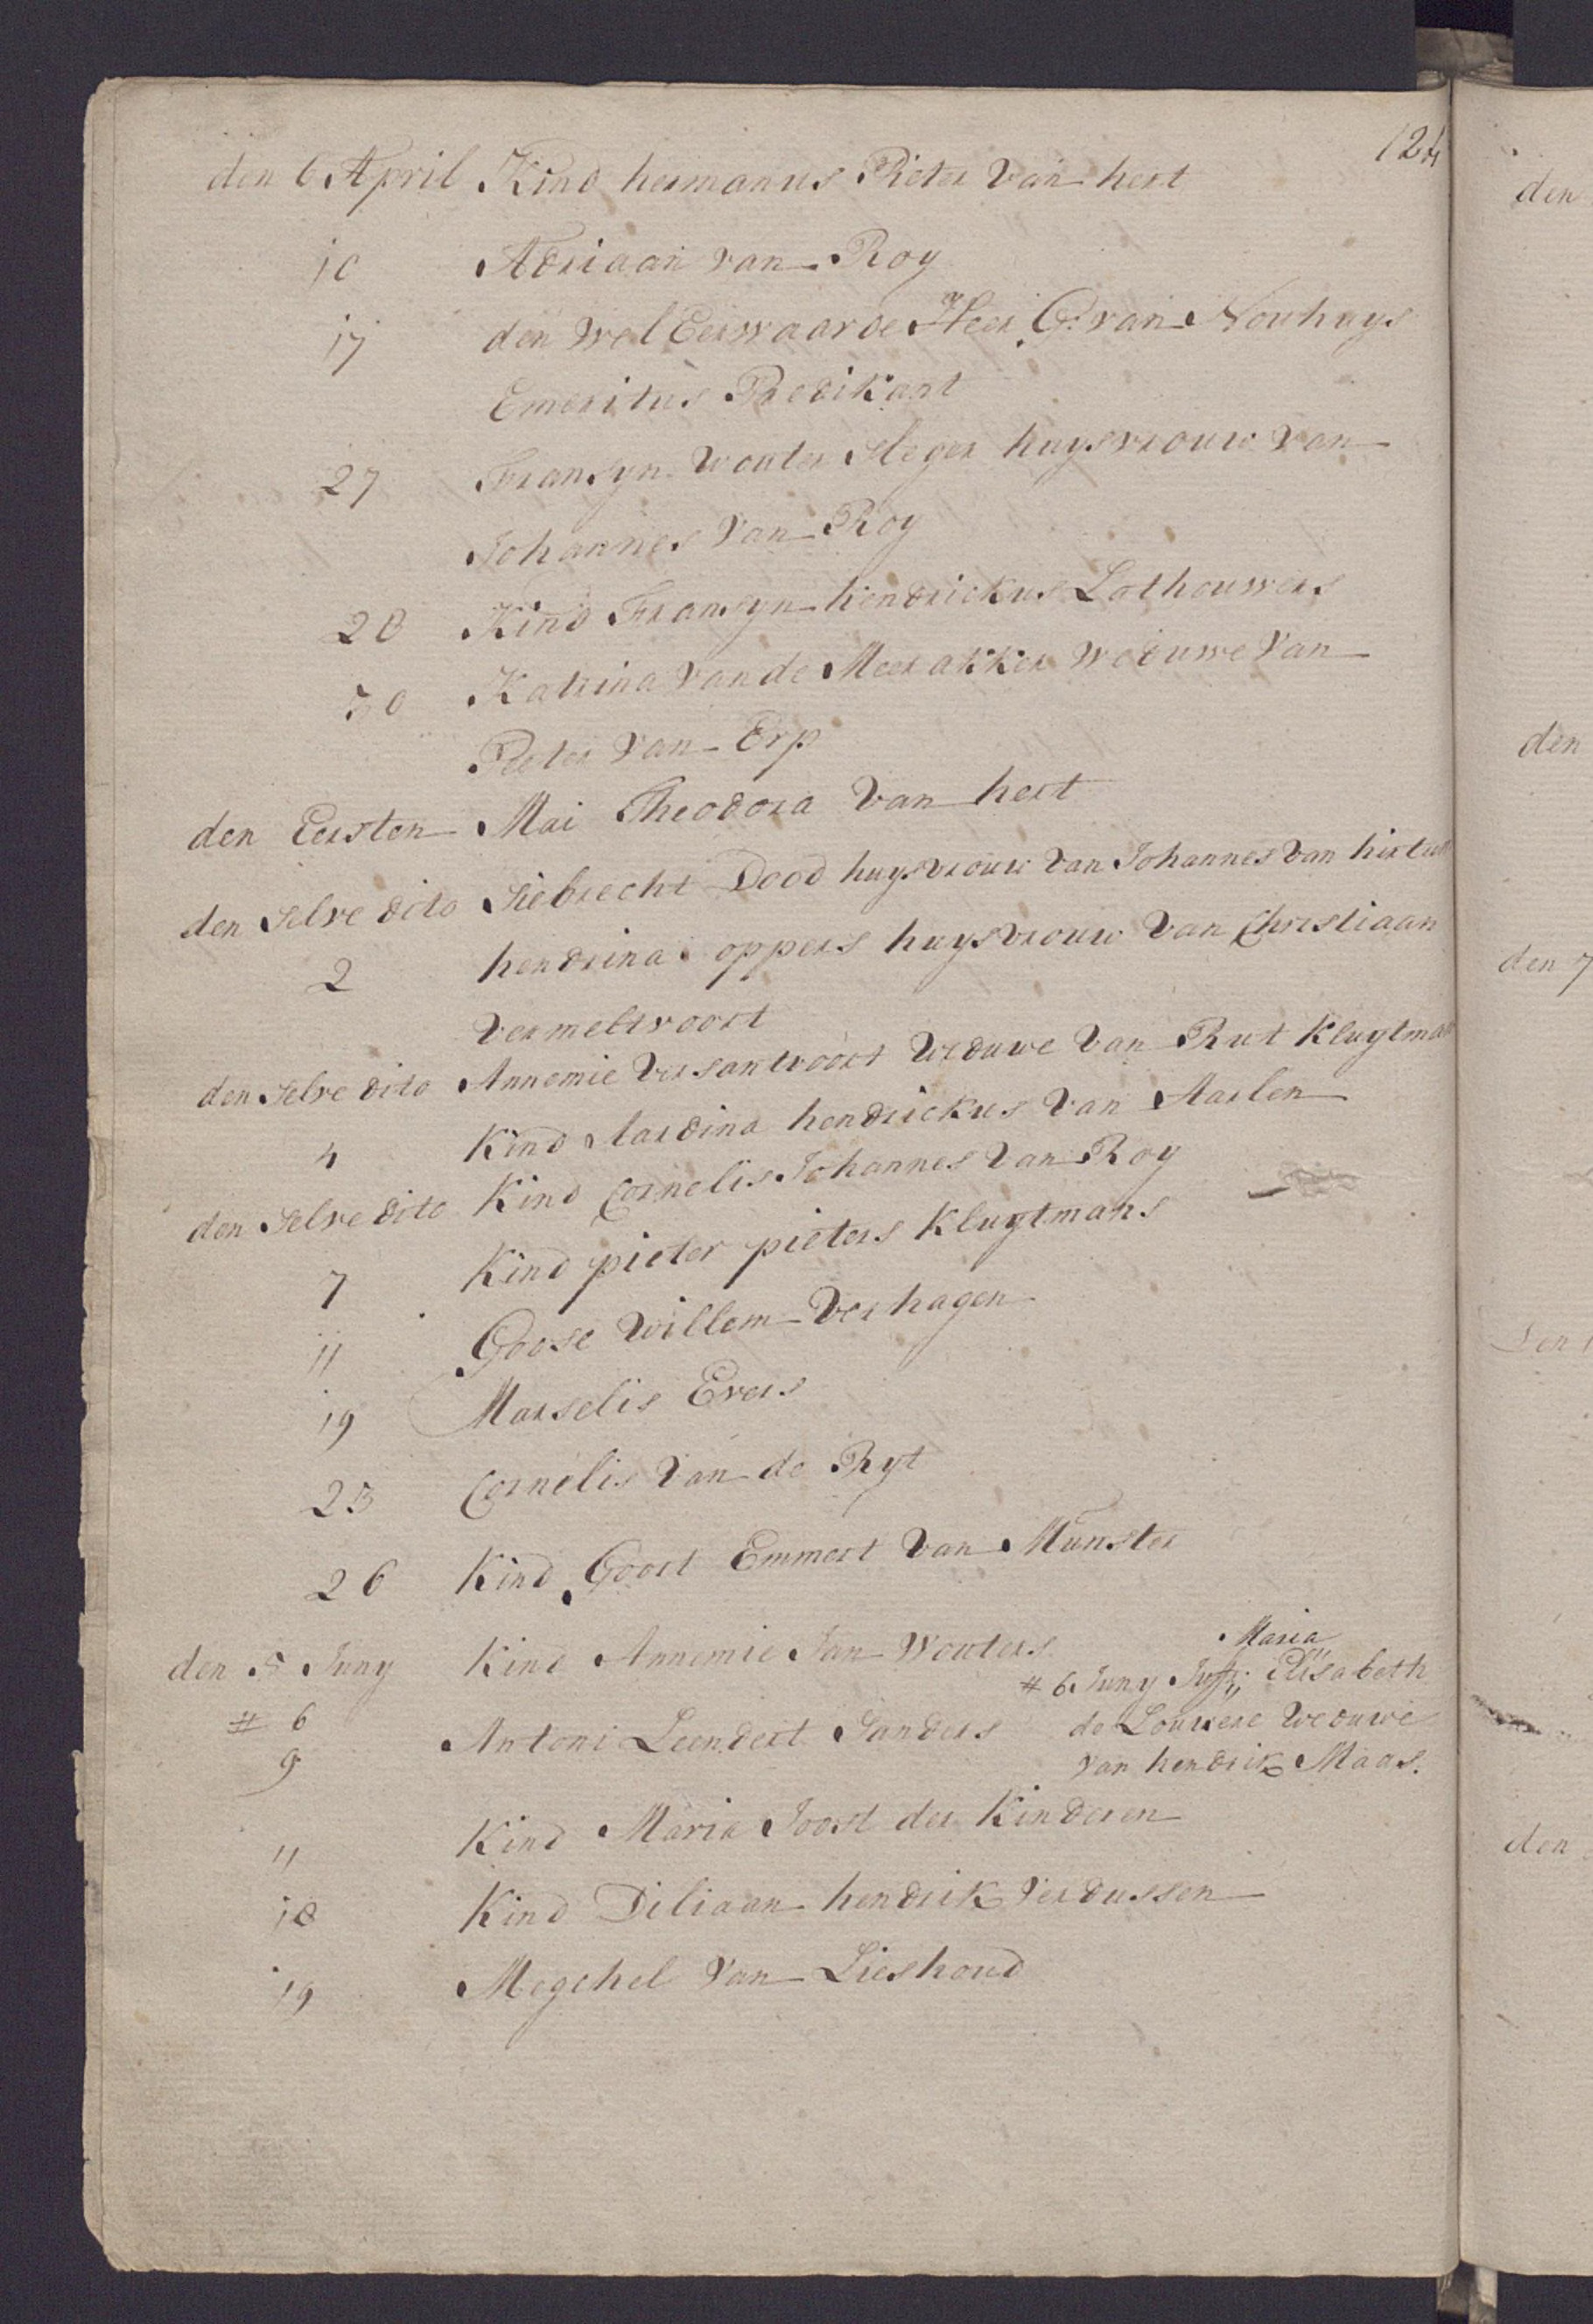 124
den 6 April Kind hermanus Pieter van hert
10 Adriaan van Roy
17 den Wel Eerwaarde Heer G: van Nouhuys
Emeritus Predikant
27 Fransyn Wouter Sleger huysvrouw van
Johannes Van Roy
28 Kind Fransyn hendrickus Lothouwers
30 Katrina van de Meerakker Weduwe Van
Peeter Van Erp
den Eersten Mai Theodora Van hert
den Selve dito Siebrecht Dood huysvrouw van Johannes van hirtum
2 hendrina oppers huysvrouw Van Christiaan
Vermeltvoort
den Selve dito Annemie Versantvoort Weduwe Van Rut Kluytmans
4 Kind Aardina hendrickus Van Aarlen
den Selve dito Kind Cornelis Johannes Van Roy
7 Kind pieter pieters Kluytmans
11 Goose Willem Verhagen
19 Marselis Evers
23 Cornelis Van de Ryt
26 Kind Goort Emmert Van Munster
den 5 Juny Kind Annemie Jan Wouters
Maria
# 6 Juny Juffr: Elisabeth
# 6
de Louwere Weduwe
9 Antoni Leendert Sanders
van hendrik Maas.
11 Kind Maria Joost der Kinderen
18 Kind Diliaan hendrik Verdussen
19 Megchel Van Lieshoud
den
den
den 7
den